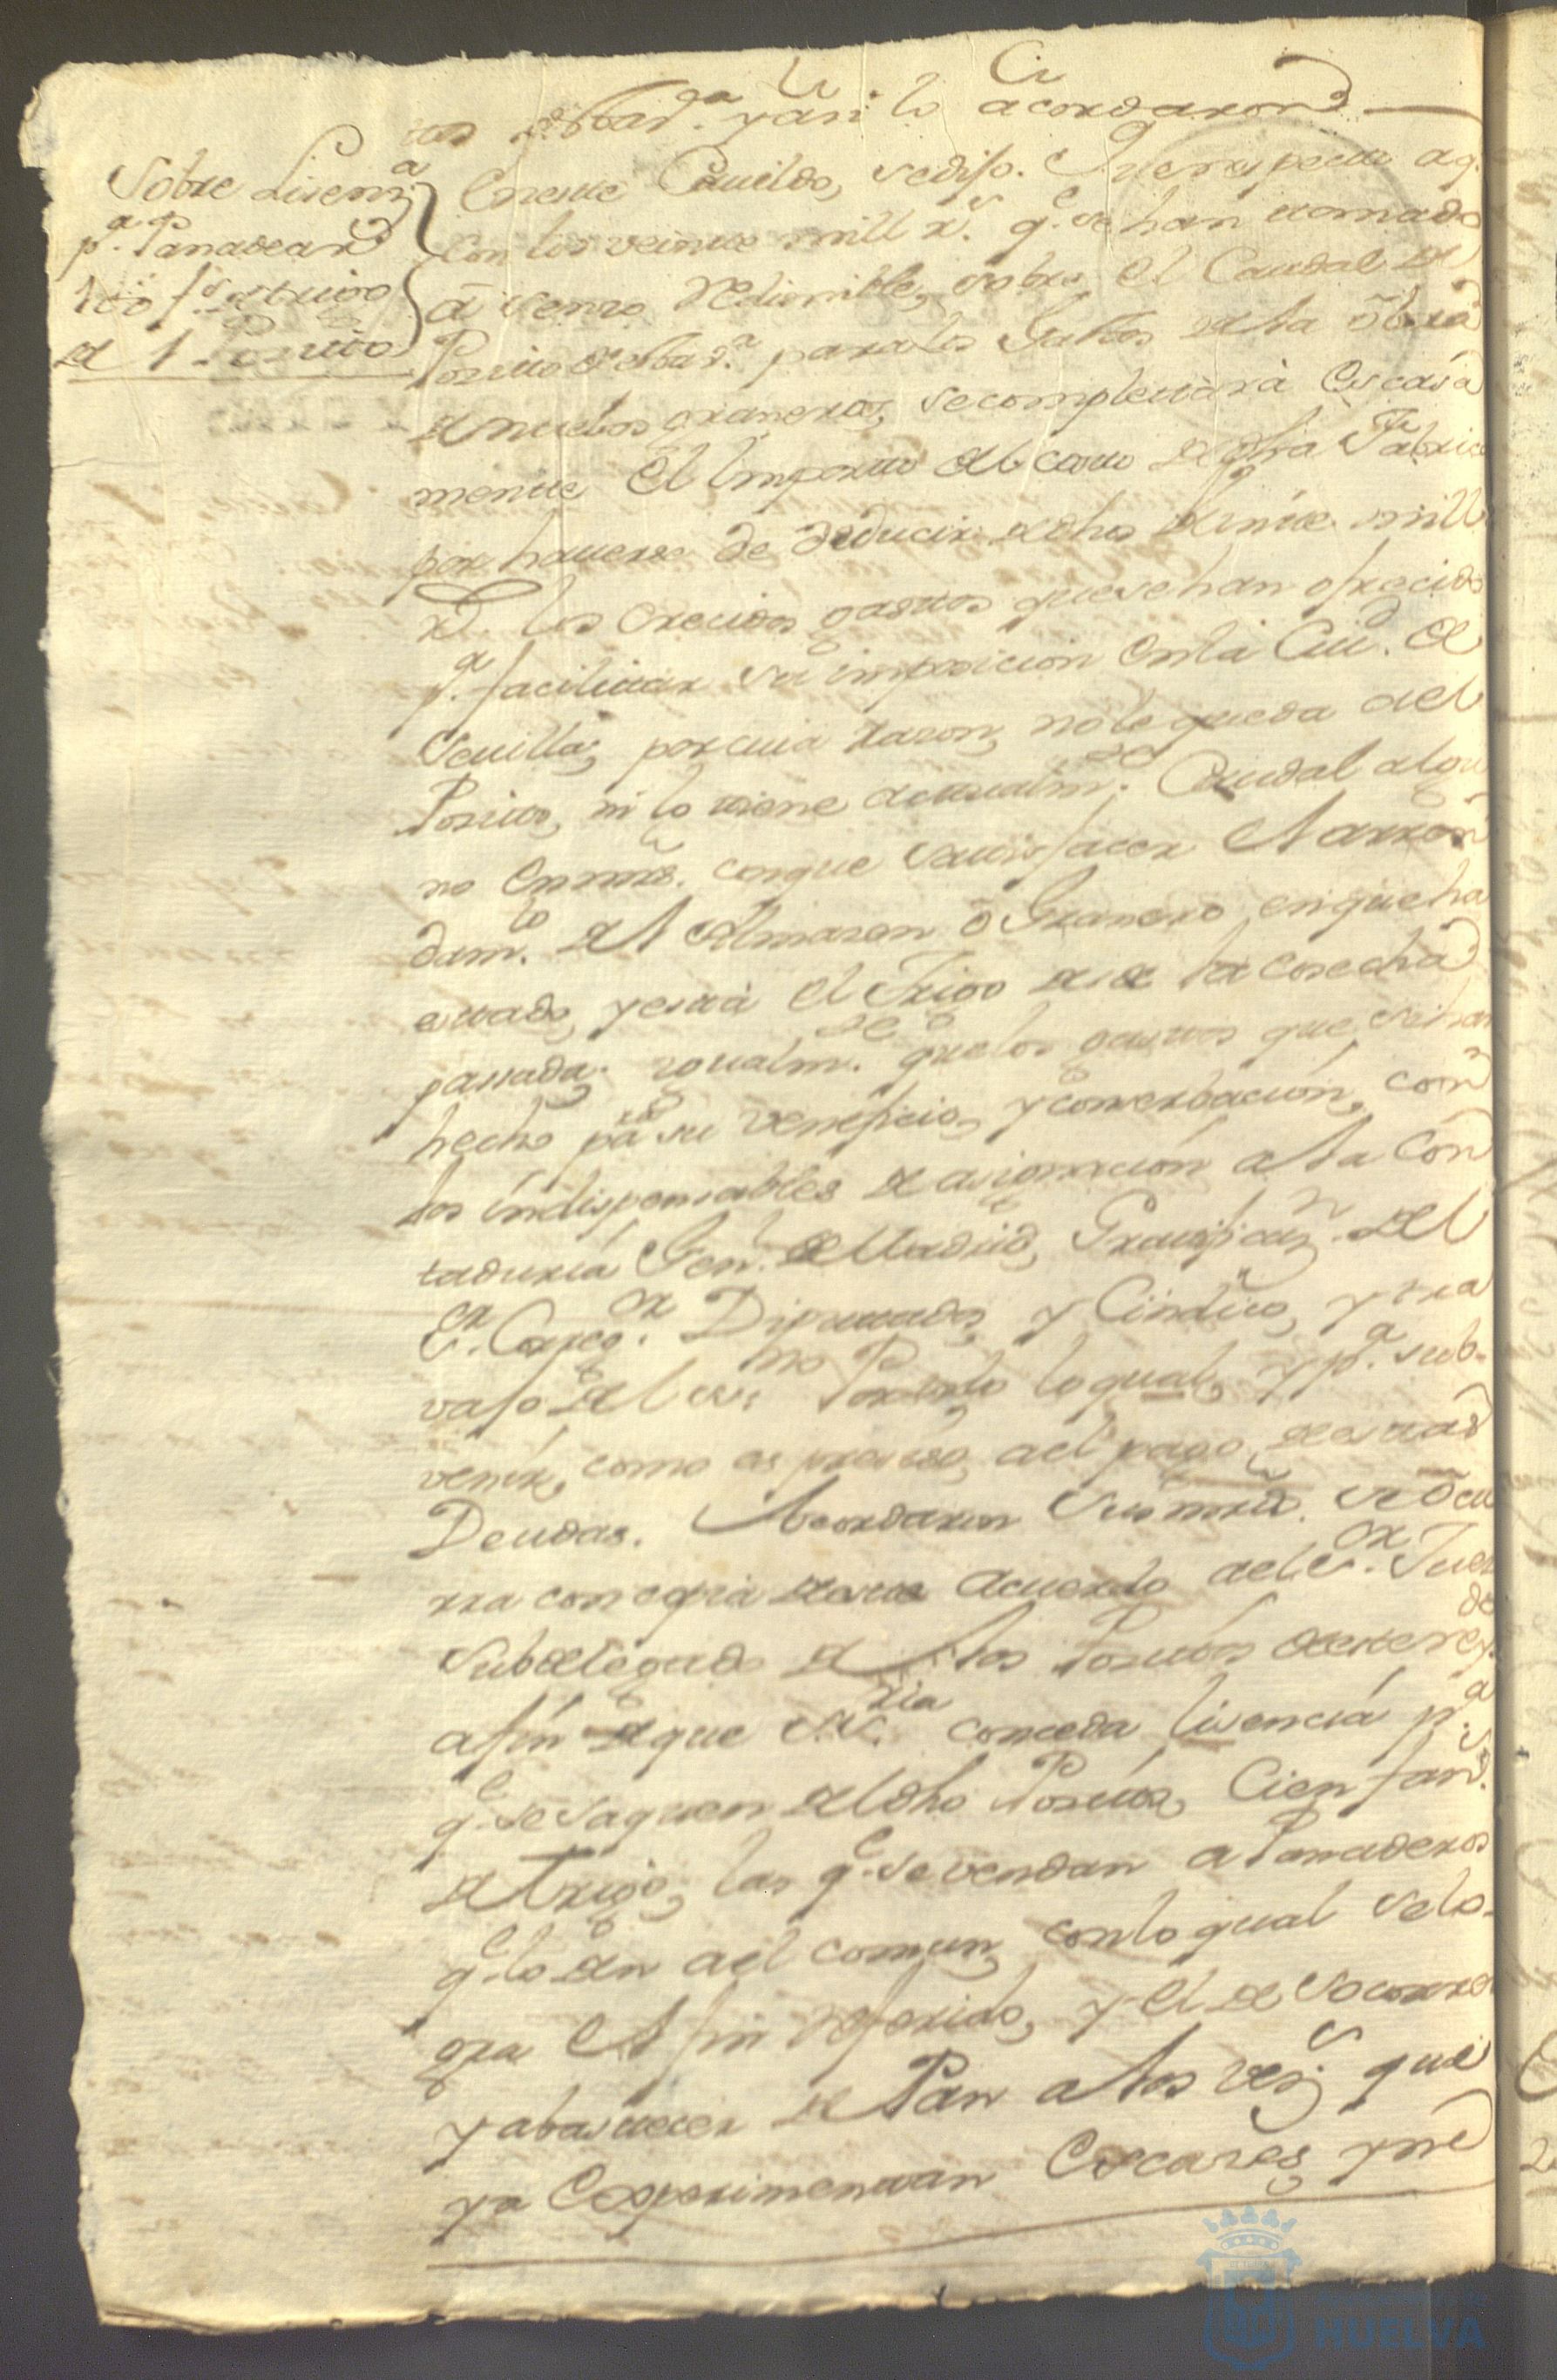 y asi lo acordaron
Sobre Lisenz.ª
p.ª Panadear
100 f.s de trigo
del Posito
En este Cavildo, se dijo. Que respecto aq.
con los veinte mill r.s q.e se han tomado
à senso redimible, sobre el Caudal del
Posito para los Gastos de la óbra
de nuebos graneros, se completarà Escasa
mente el Importe del costo de dha Fabrica
por haverse de deducir de dhos veinte mill
r.s los crecidos gastos que se han ofrecido
p.ª facilitar su imposicion en la Ciu.d de
Sevilla, por cuia razon, no le queda del
Posito, ni lo tiene actualm.te Caudal algu
no en mrs. con que satisfacer el arren
dam.to del Almazen ò Granero, en que ha
estado, y està el Trigo desde la cosecha
passada. igualm.te que los gastos que se han
hecho para su veneficio, y conserbacion, con
los indispensables de asignacion a la Con
taduria Gen.l de Madrid, Gratificaz.n del
S.r Correg.or Diputados, y Sindico, y tra
vajo del es.no Por todo lo qual, y p.ª sub-
venir, como es preciso, del pago de estas
Deudas. Acordaron Sus mrds. se ócu
rra con copia de este acuerdo del S.r Juez
Subdelegado de los Positos de este rey.do
a fin de que su S.ria conceda lisencia p.ª
q.e se saquen del dho Posito, Cien fan.s
de trigo, las q.e se vendan a Panaderos
q.e lo den del comun, con lo qual se lo-
gra el fin referido, y el de socorrer
y abastecer de Pan a los vez.s que
ya Experimentan Escases, y ne
HUELVA